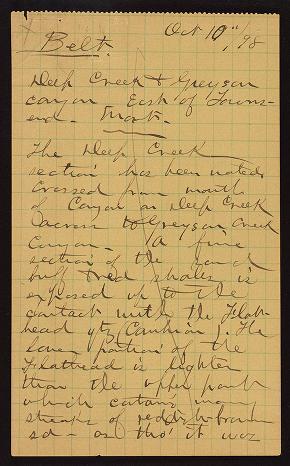 Oct 10"/98
Belt.
Deep Creek & Greyson
canyon East of Towns-
end - Mont -
The Deep Creek
section has been noted
Crossed from mouth
of Canyon on Deep Creek
across to Greyson Creek
Canyon - A fine
section of the and
buff red shales is
exposed up to the
contact with the Flat-
head qtz (Cambrian). The
lower portion of the
Flathead is lighter
than the upper part
which contains many
streaks of reddish brown
sd - as tho' it was